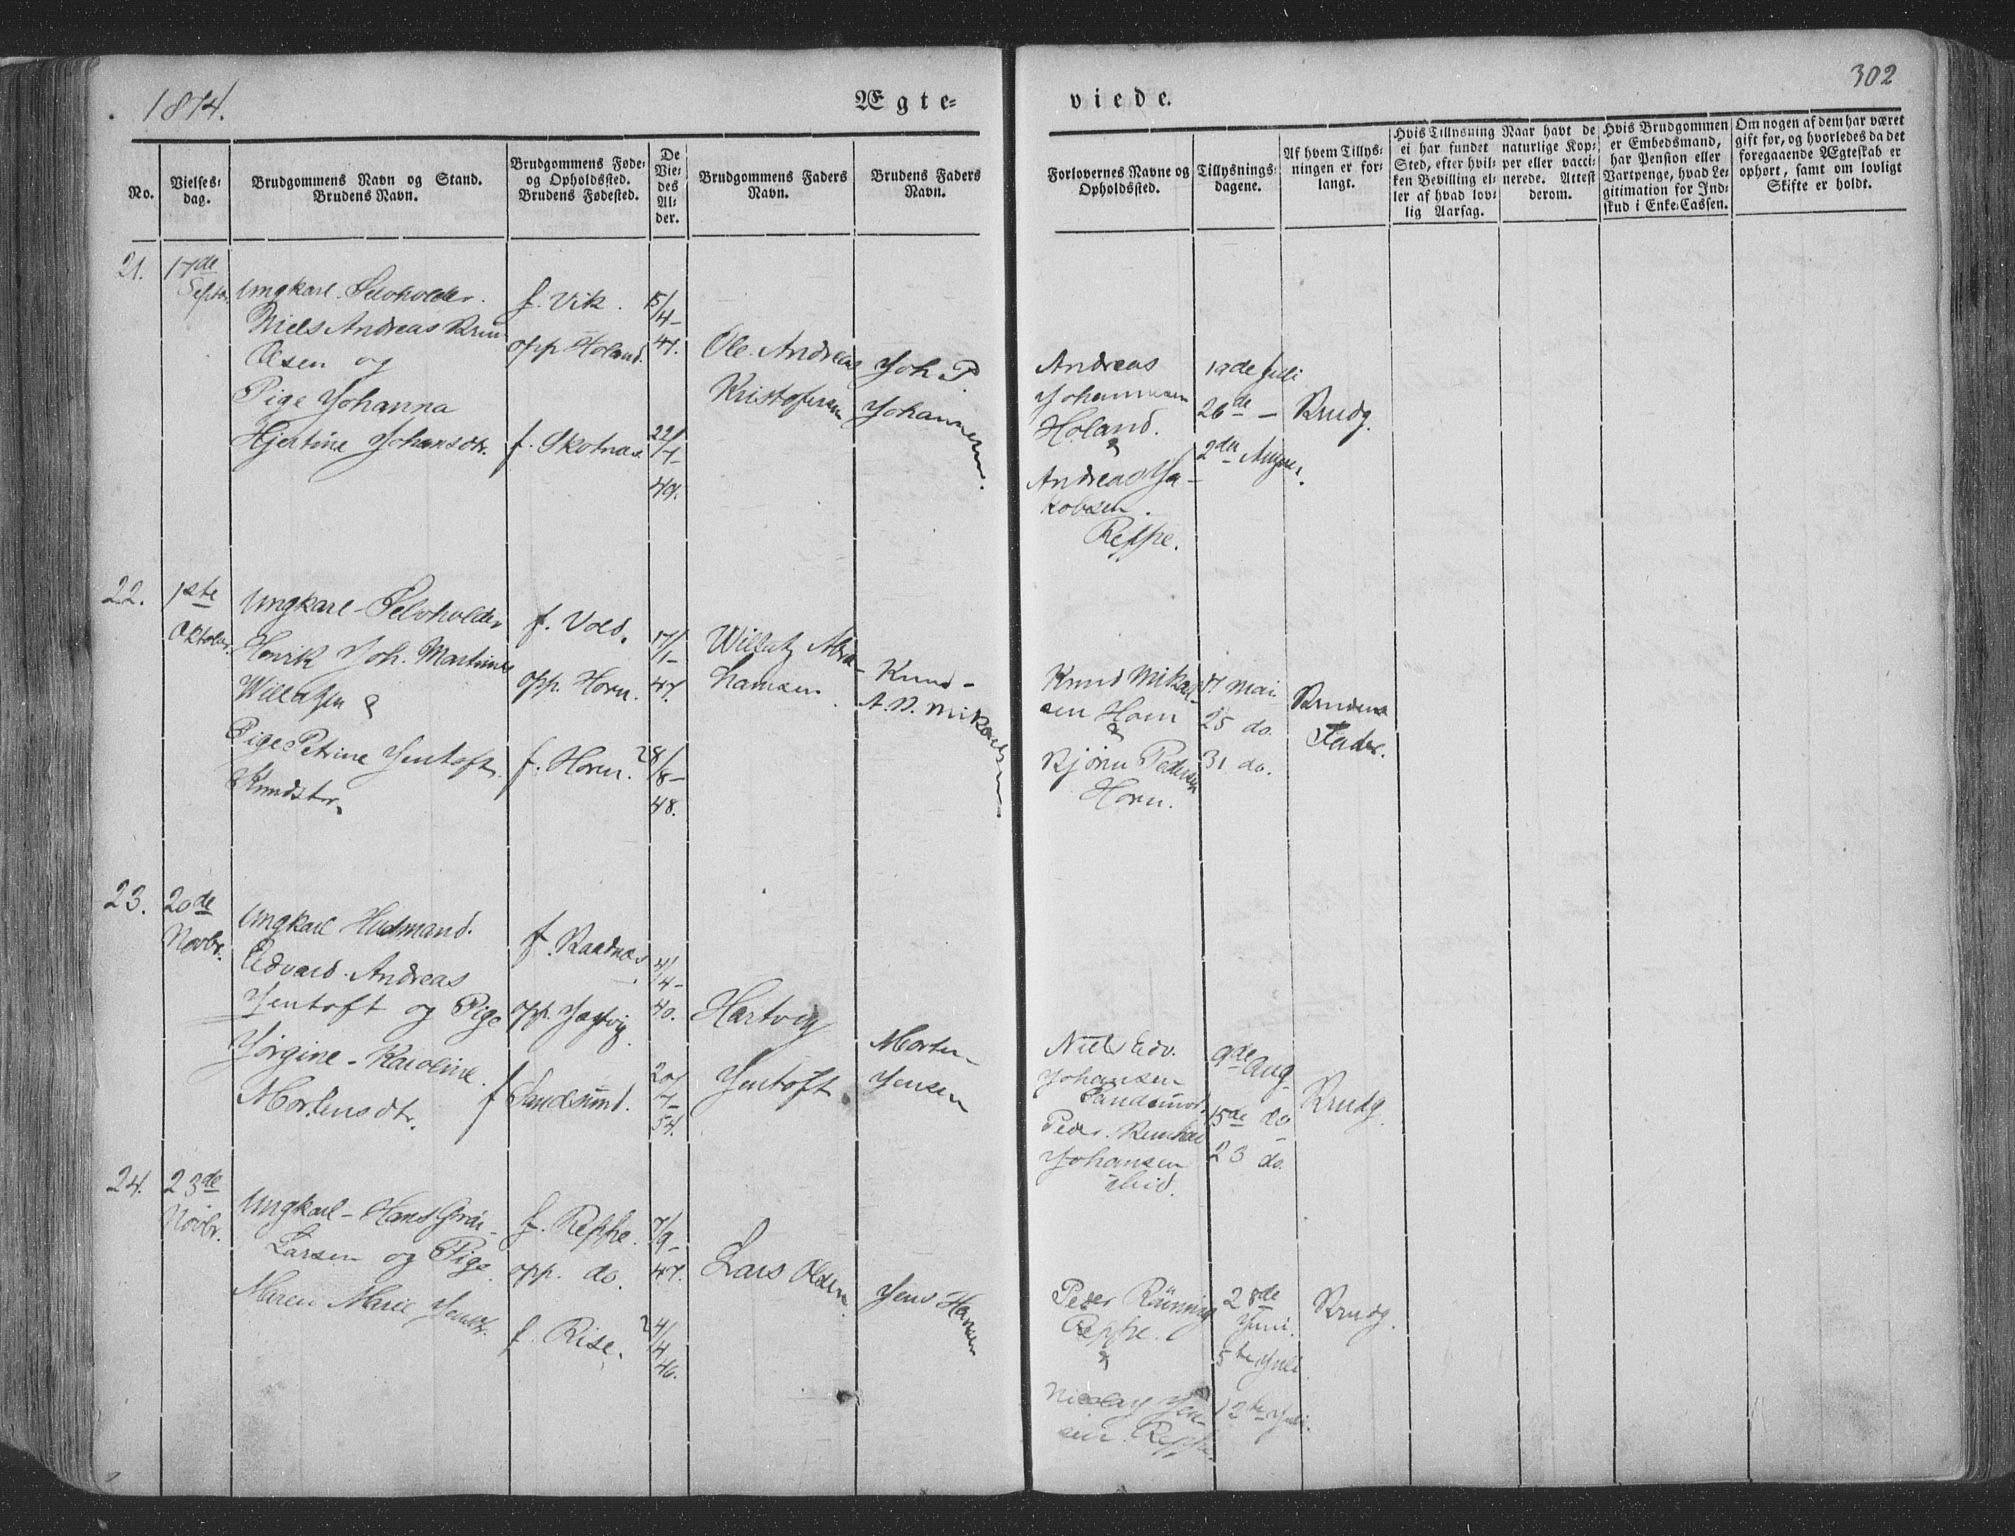 1874.
Ægte=
viede.
302
No.
Vielses=
dag.
Brudgommens Navn og Stand.
Brudens Navn.
Brudgommens Føde=
og Opholdssted.
Brudens Fødested.
De
Vie=
des
Al=
der.
Brudgommens Faders
Navn.
Brudens Faders
Navn.
Forlovernes Navne og
Opholdssted.
Tillysnings=
dagene.
Af hvem Tillys=
ningen er for=
langt.
Hvis Tillysning
ei har fundet
Sted, efter hvil=
ken Bevilling el=
ler af hvad lov=
lig Aarsag.
Naar havt de
naturlige Kop=
per eller vacci=
nerede. Attest
derom.
Hvis Brudgommen
er Embedsmand,
har Pension eller
Vartpenge, hvad Le=
gitimation for Ind=
skud i Enke=Cassen.
Om nogen af dem har været
gift før, og hvorledes da det
foregaaende Ægteskab er
ophørt, samt om lovligt
Skifte er holdt.
21.
17de
Septbr.
Ungkarl Selvholder
Niels Andreas
Olsen og
Pige Johanna
Hjertine Johansdtr.
f. Vik.
opp. Holand.
f. Skotnes
15/4-
47.
22/1-
49.
Ole Andreas
Kristofersen
Joh P.
Johannesen.
Andreas
Johannesen
Holand.
&
Andreas Ja-
kobsen.
Reppe.
19de Juli
26de -
2den August.
Brudg.
22.
1ste
Oktober.
Ungkarl Selvholder
Henrik Joh. Martinus
Willatzen &
Pige Petrine Jentoft
Knudsdtr.
f. Vold.
opp. Horn.
f. Horn.
17/1-
47.
28/8-
48.
Willatz Abra-
hamsen.
Knud
A. D. Mikaelsen
Knud Mikael-
sen Horn
&
Bjørn Pedersen
Horn.
17 Mai
25 do.
31 do.
Brudens
Fader.
23.
20de
Novbr.
Ungkarl Husmand.
Edvard Andreas
Jentoft og Pige
Jørgine Karoline
Mortensdtr.
f. Raadnæs
opp. Jægtvig
f Sandsund.
4/4-
40.
20/7-
54.
Hartvig
Jentoft
Morten
Jensen
Niels Edv.
Johansen
Peder
Johansen
ibid.
9de Aug.
15de do
23 do.
Brudg.
24.
23de
Novbr.
Ungkarl - Hans
Larsen og Pige
Maren Marie Jensdtr.
f. Reppe.
opp. do.
f. Rise.
7/9-
47.
24/4
46.
Lars Olsen
Jens Hansen
Peder Rønning
Reppe.
&
Nicolay Jen-
sen Reppe
28de
Juni.
5te Juli
12te Juli.
Brudg.